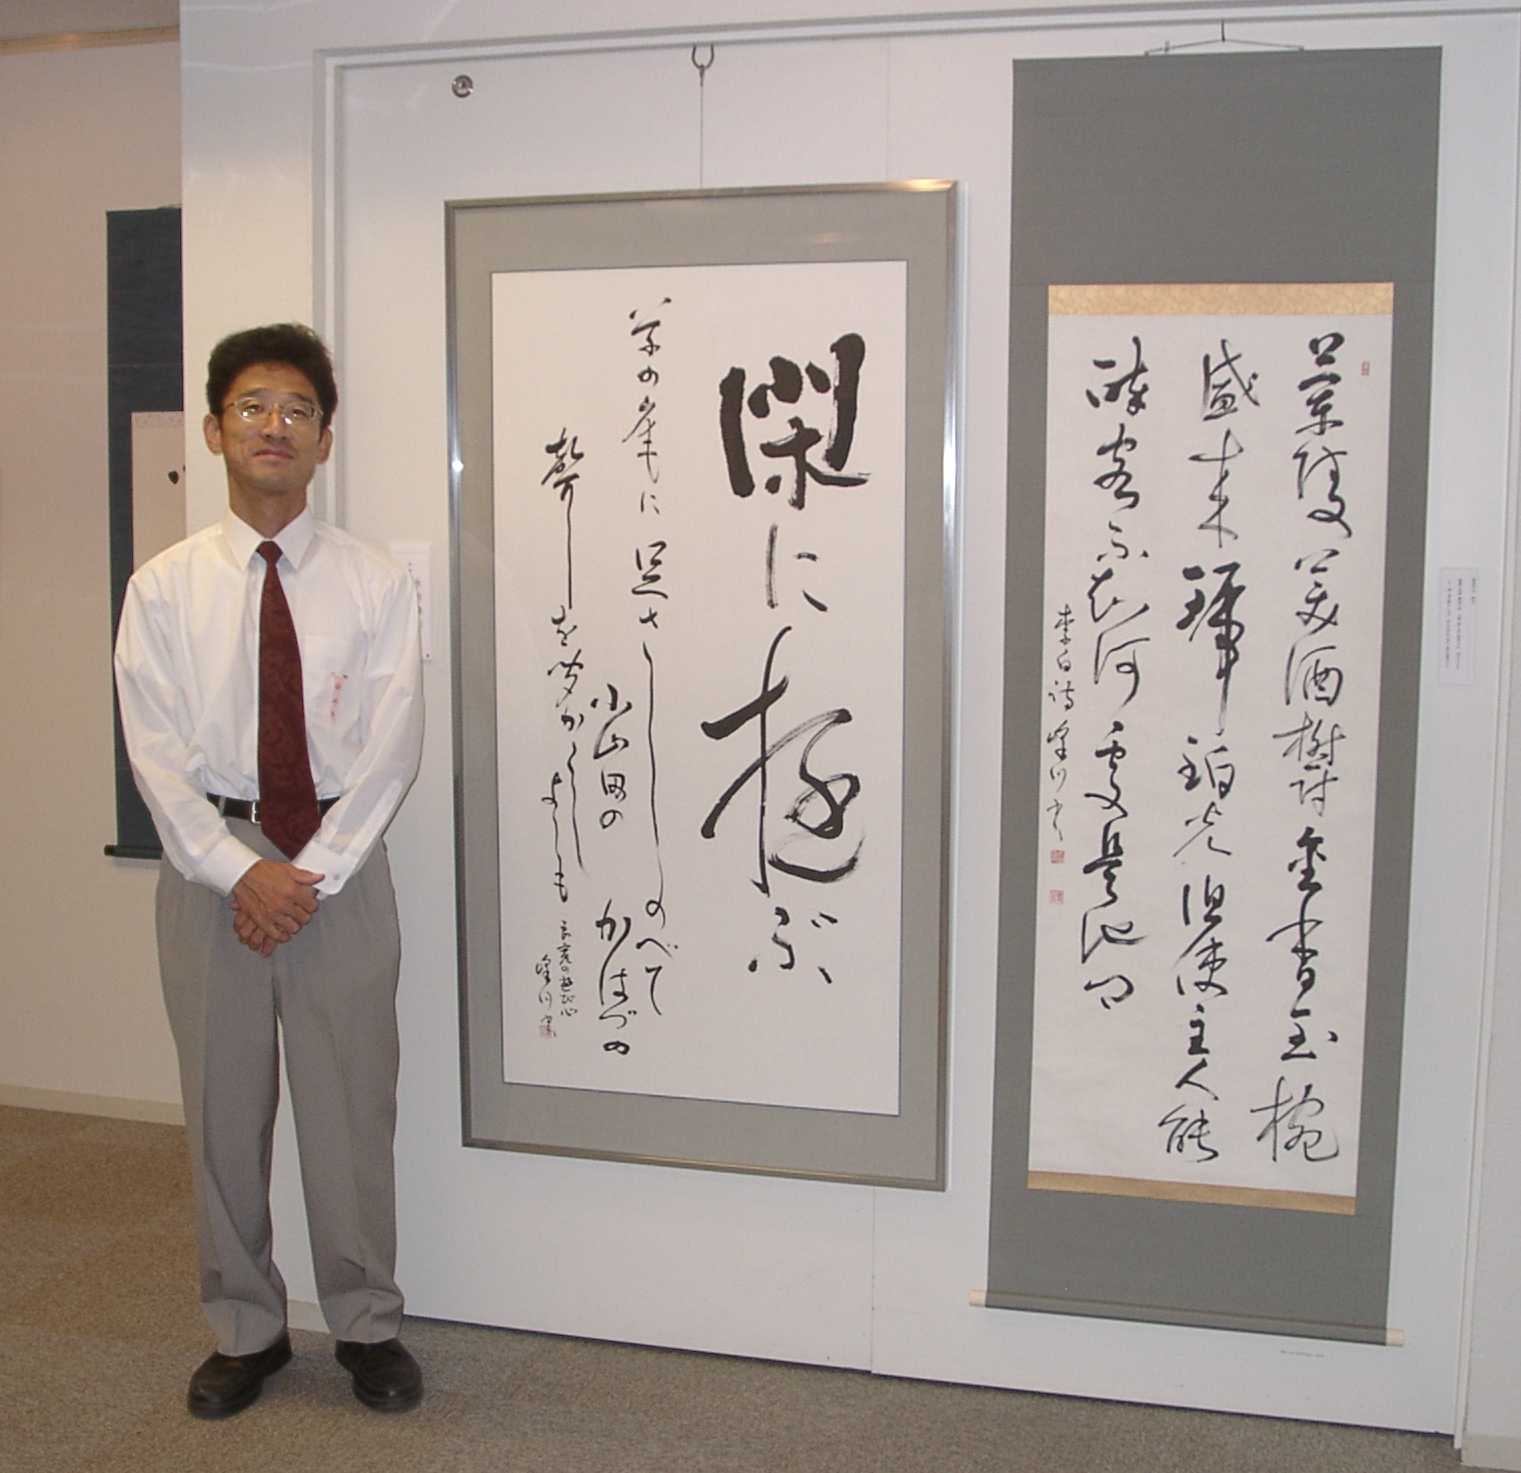 蘭陵美酒鬱金香玉椀
盛来琥珀光但使主人能
酔客不知何處是他郷
李白詩
閑に遊ぶ
草の庵に足さしのべて
小山田のかはづの
聲を聞かくしよしも
良寛の遊び心